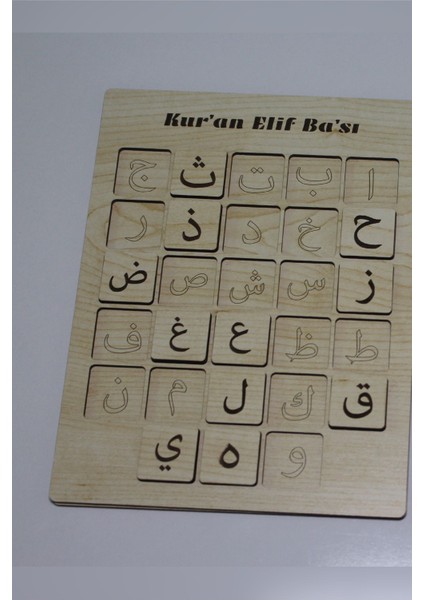 Kur'an Elif Ba'sı
ا ب ت ث ج
ح خ د ذ ر
ز س ش ص ض
ط ظ ع غ ف
ق ك ل م ن
و ه ي